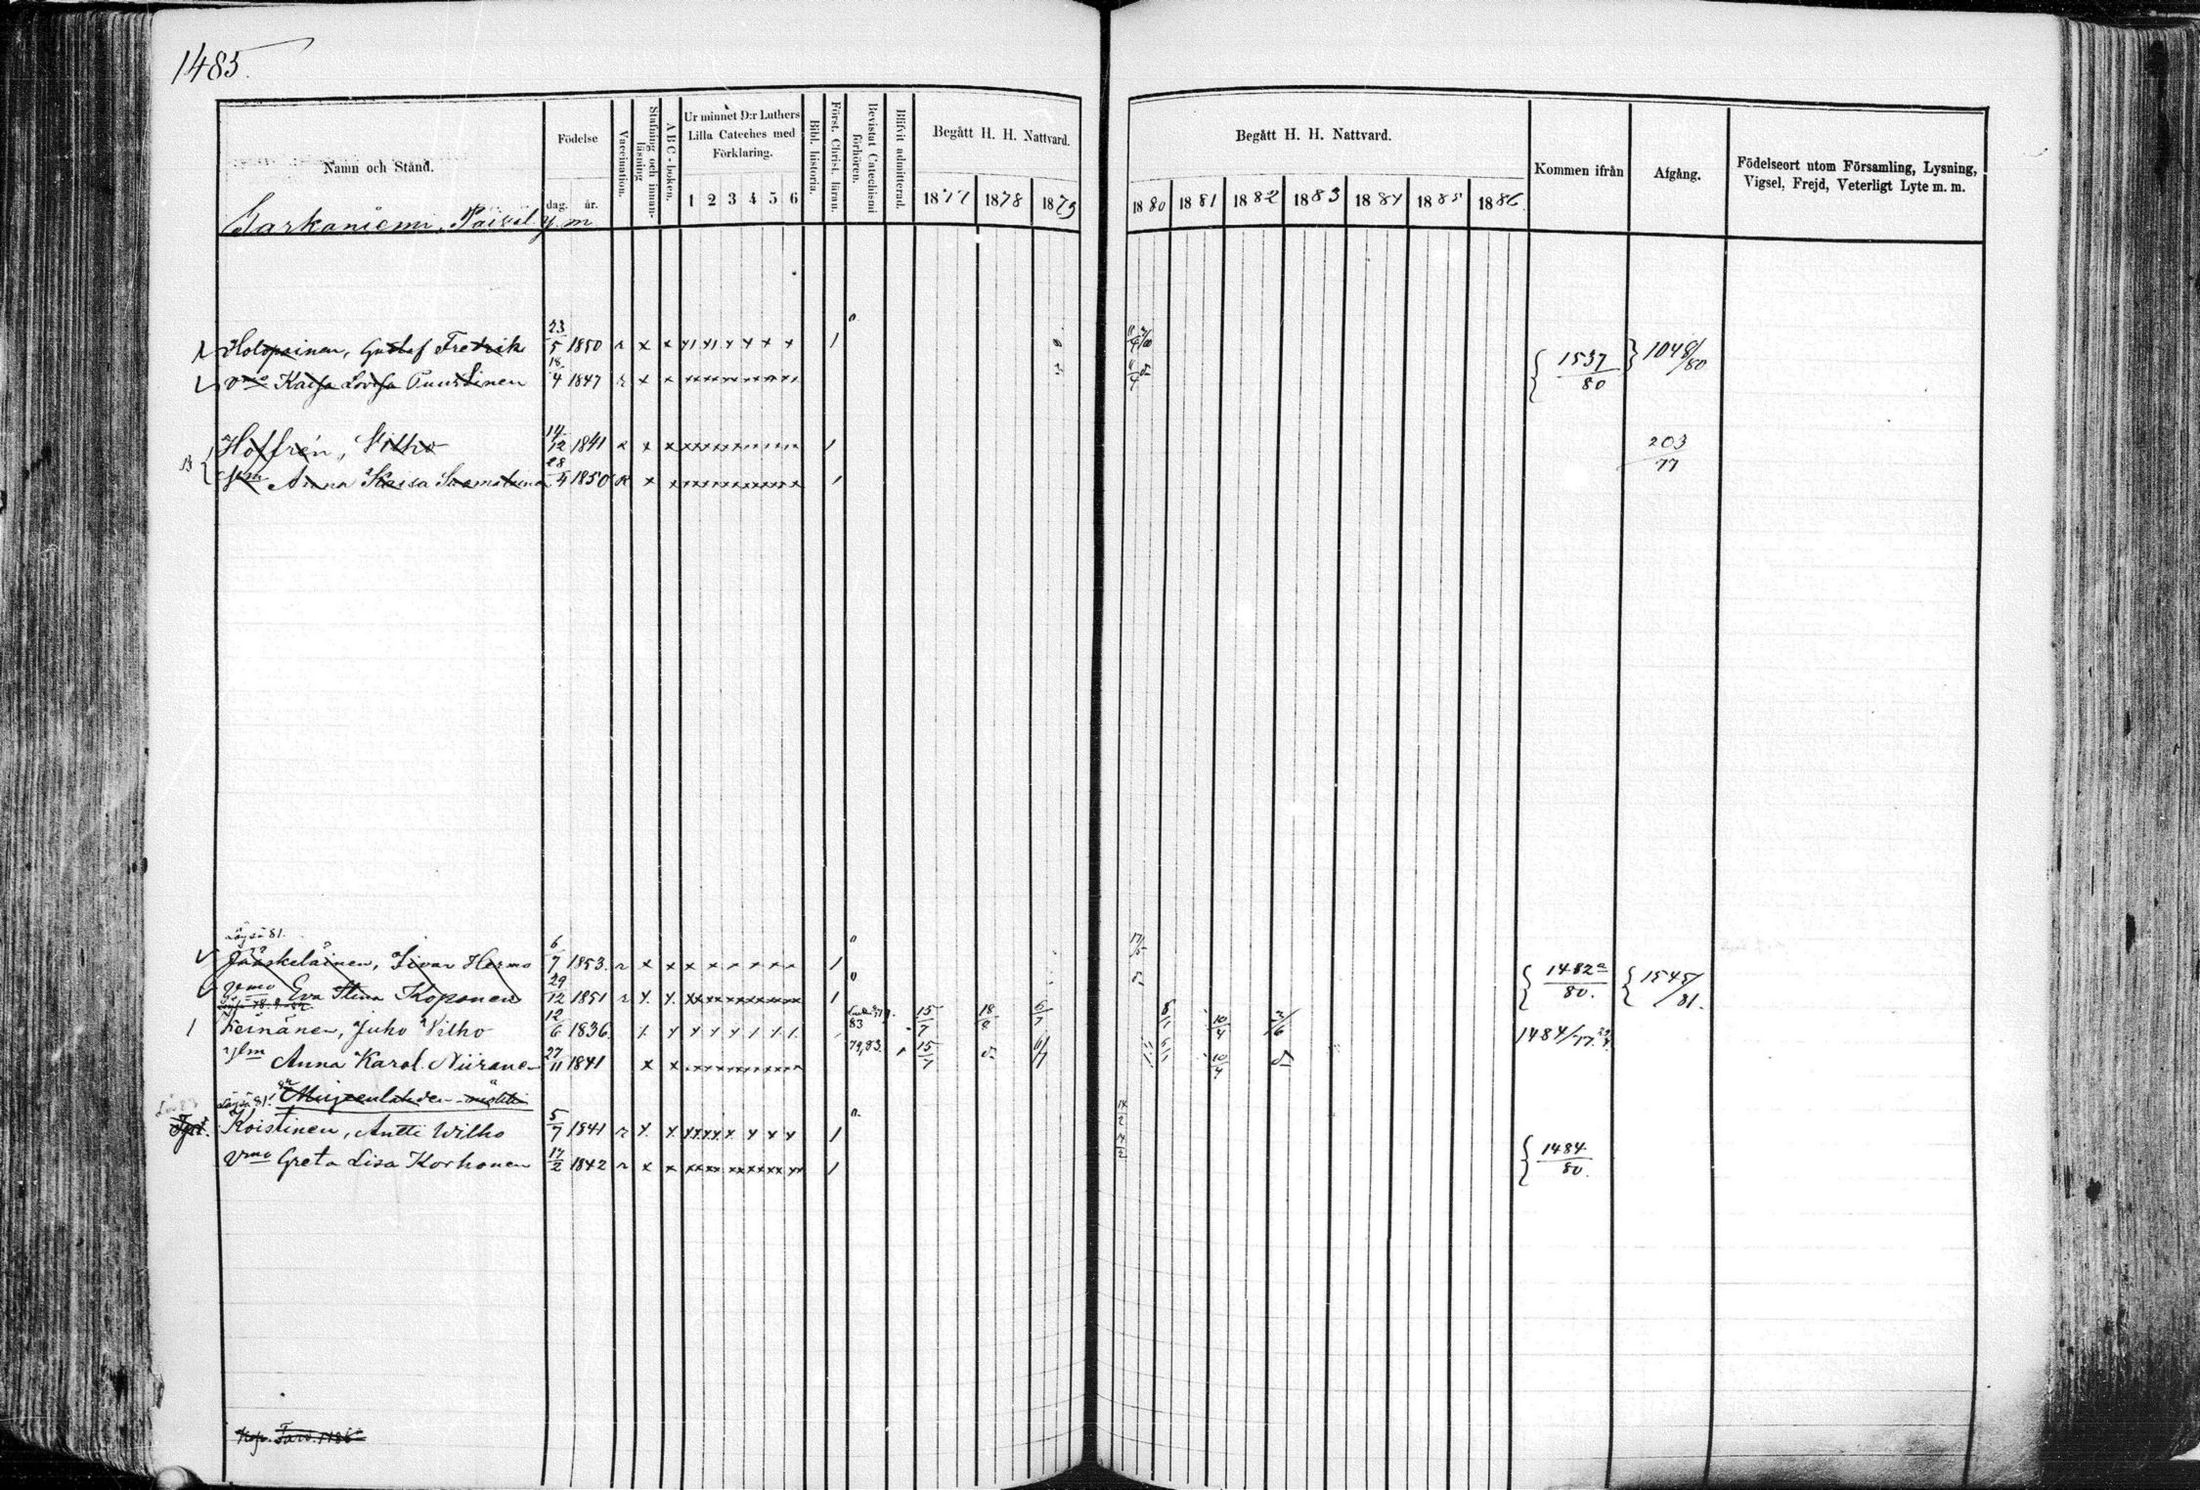 1485.
Namn och Stånd.
Födelse
dag. år.
Vaccination.
Stafning och innanläsning
ABC-boken.
Ur minnet D:r Luthers Lilla Cateches med Förklaring.
1 2 3 4 5 6
Bibl. historia.
Först. Christ. läran.
Bevistat Catechismi förhören.
Blifvit admitterad.
Begått H. H. Nattvard.
1877 1878 1879
Begått H. H. Nattvard.
1880 1881 1882 1883 1884 1885 1886.
Kommen ifrån
Afgång.
Födelseort utom Församling, Lysning, Vigsel, Frejd, Veterligt Lyte m. m.
Sarkaniemi, Päiväl. y. m
Holopainen, Gustaf Fredrik 23/5 1850 1537/80 1048/80
Vmo Kaisa Lovisa Puustinen 18/4 1847
Hoffrén, Vilho 14/12 1841 203/77
Anna Kaisa 28/4 1850
Löysä 81.
Jääskeläinen, Iivar Hermo 6/7 1853 17/5 1482a/80. 1545/81.
Vmo Eva Stina Koponen 29/12 1851
Keinänen, Juho Vilho 12/6 1836 83 15/7 18/8 6/7 10/4 1484/77
Ylm Anna Karol. Niiranen 27/11 1841 79,83. 15/7 6/7 10/4
Löysä 81!
Koistinen, Antti Wilho 5/7 1841 14/2 1484/80.
Vmo Greta Lisa Korhonen 17/2 1842 14/2